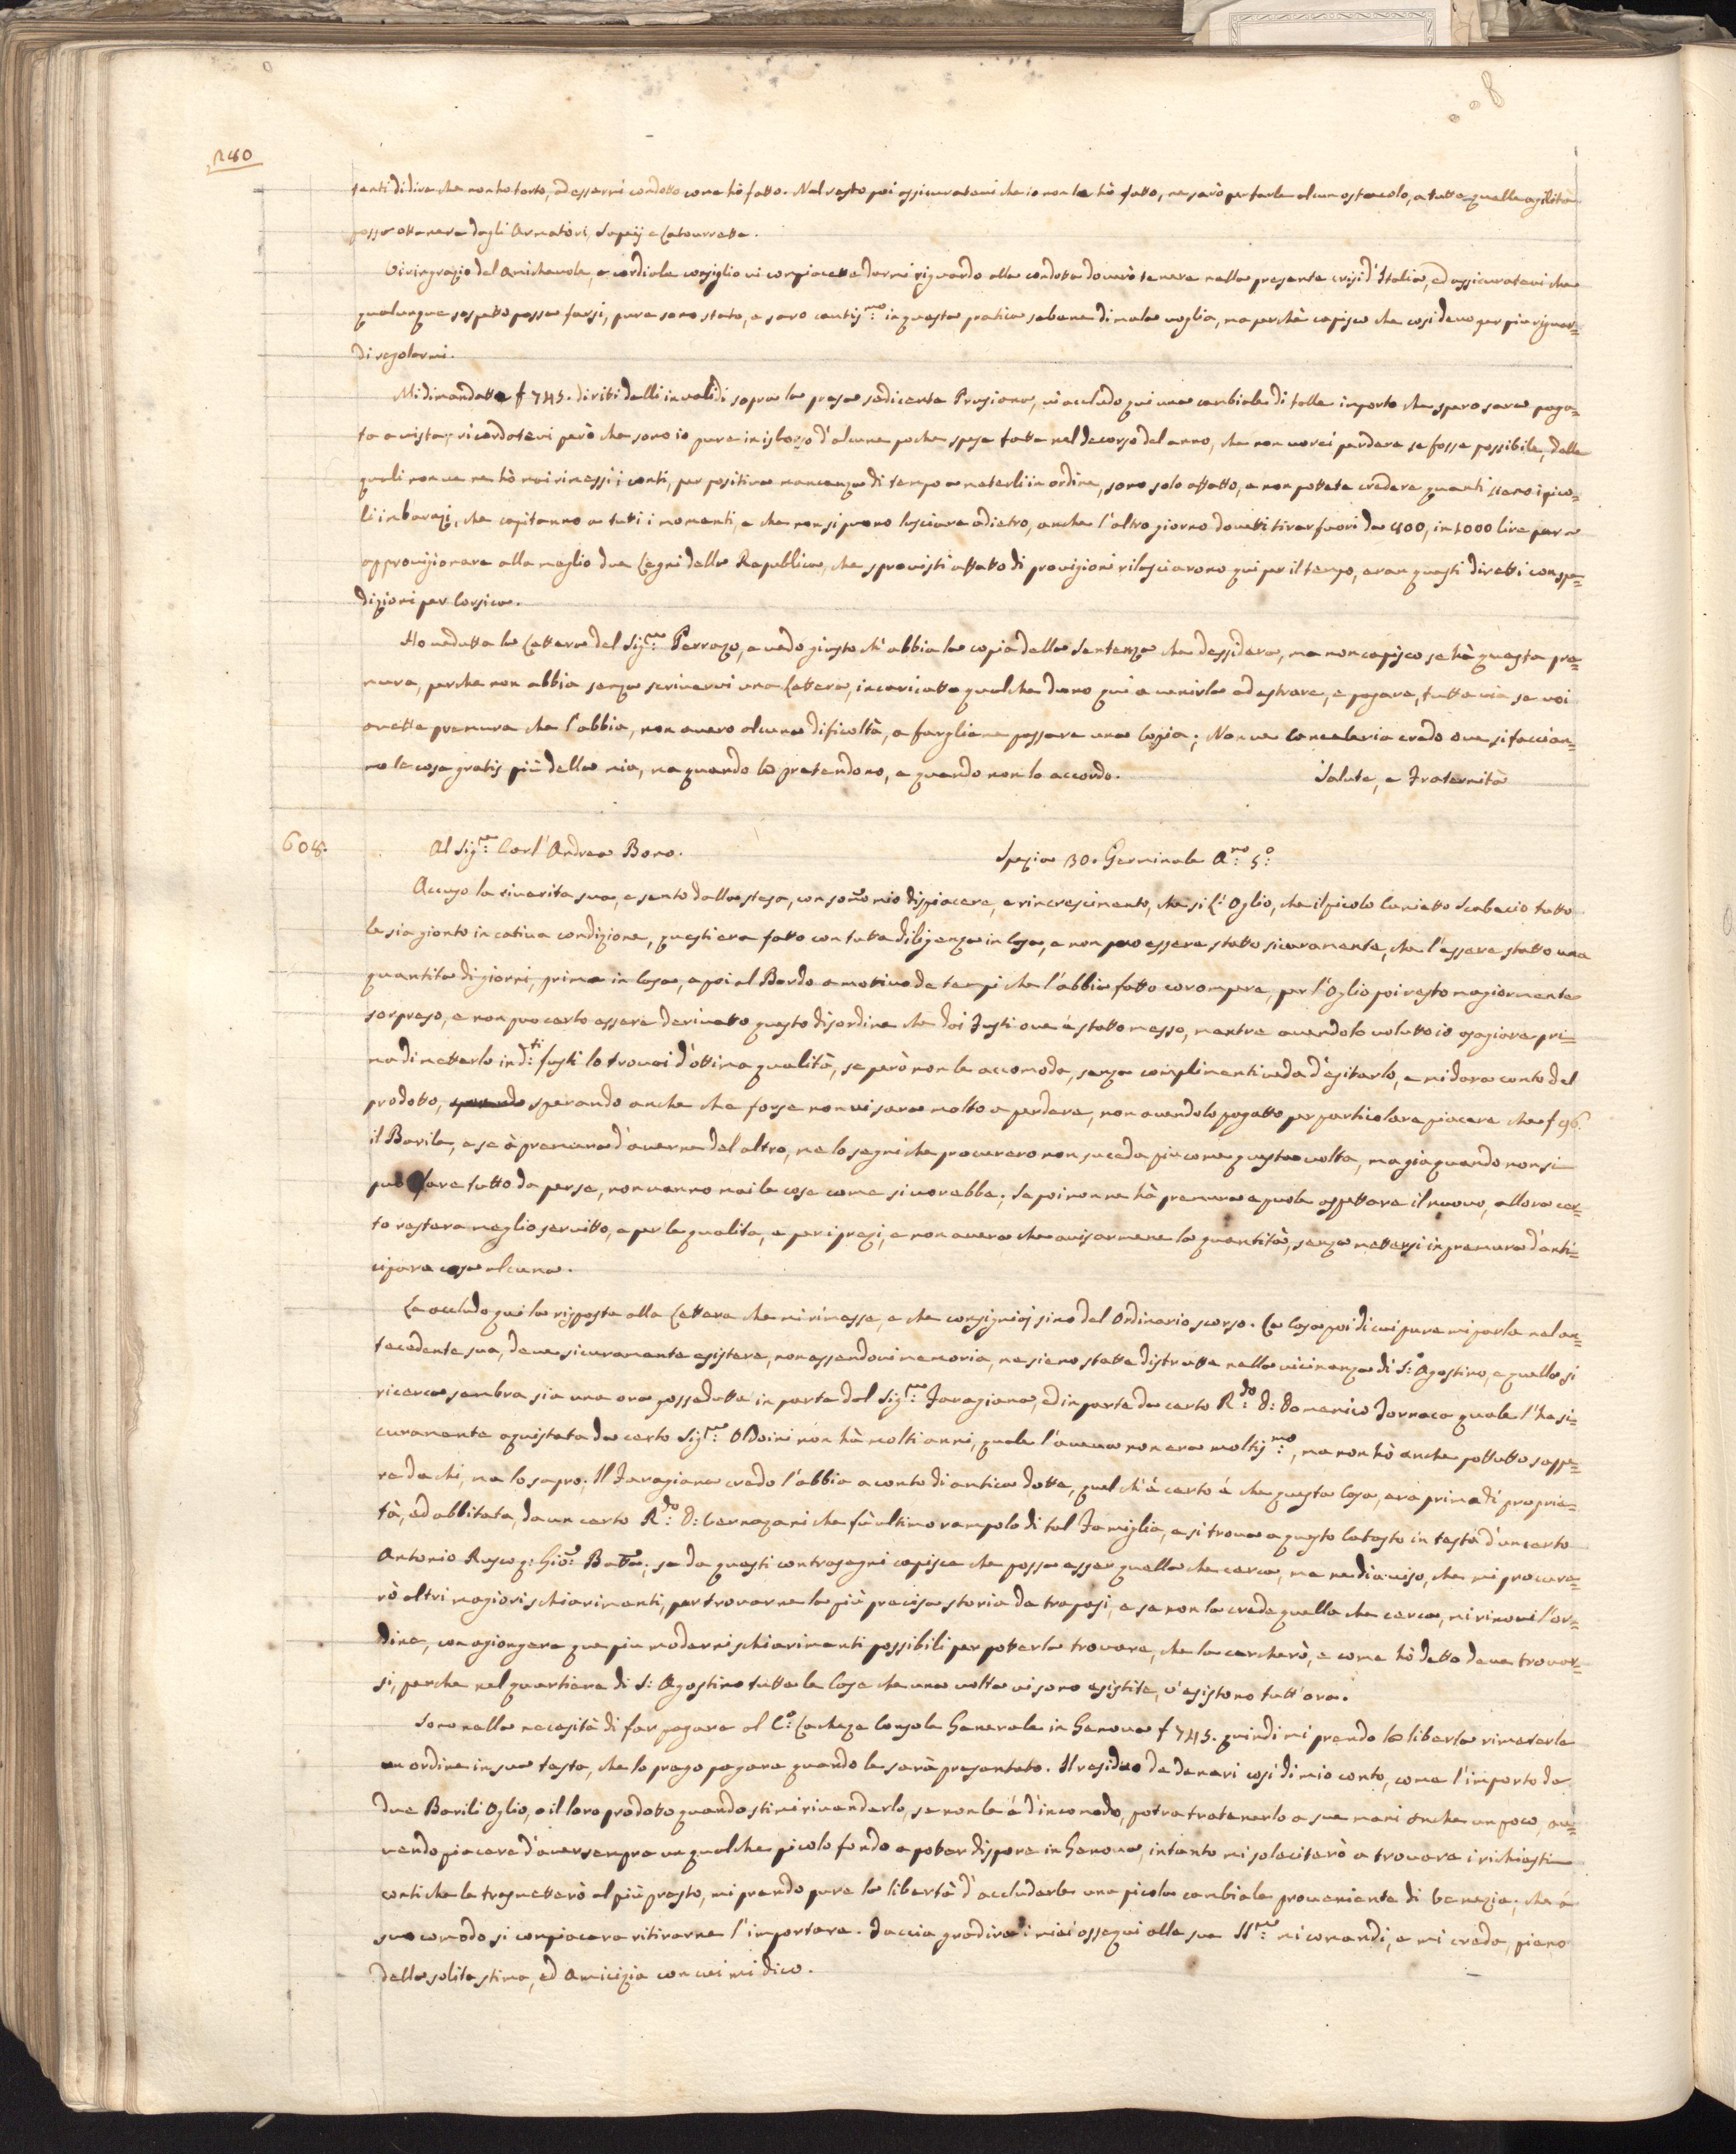 280
tenti di dire che non ho torto, ad essermi condotto come hò fatto. Nel resto poi assicuratevi che io non le hò fatto, ne sarò per farle alcun ostacolo, a tutte quelle agilità
posse ottenere dagli Armatori, Sapeij e Latourrette.
Vi ringrazio del Amichevole, e cordiale consiglio vi compiacette darmi riguardo alla condotta doverò tenere nella presente crisi d'Italia, ed assicuratevi che
qualunque sospetto possa farsi, pure sono stato, e saro cautis:mo in questa pratica sebene di mala voglia, ma perchè capisco che cosi devo per più riguar=
di regolarmi.
Mi dimandatte f 745. diriti delli invalidi sopra la presa sedicente Prusiana, vi accludo qui una cambiale di talle importo che spero sara paga=
ta a vista; ricordatevi però che sono io pure in isborso d'alcune poche spese fatte nel decorso del anno, che non vorei perdere se fosse possibile, delle
quali non ve ne hò mai rimessi i conti, per positiva mancanza di tempo a meterli in ordine, sono solo affatto, e non pottete credere quanti siano i pico=
li imbarazi, che capitanno a tutti i momenti, e che non si pono lasciare adietro, anche l'altro giorno dovetti tirar fuori da 900, in 1000 lire per
approvigionare alla meglio due Legni della Republica, che sprovisti affatto di provigioni rilasciarono qui per il tempo, eran questi diretti con spe=
dizioni per Corsica.
Ho veduta la Lettera del Sig:re Perrazo, e vedo giusto ch'abbia la copia della Sentenza che dessidera, ma non capisco se hà questa pre=
mura, perche non abbia senza scrivervi una Lettera, incaricatto qualche duno qui a venirla ad estrare, e pagare, tutta via se voi
avette premura che l'abbia, non avero alcuna dificoltà, a fargliene passare una Copia; Non ve Cancelaria credo ove si faccian=
no le cose gratis più della mia, ma quando lo pretendono, e quando non lo accordo. Salute, e Fraternità
608. Al Sig:re Carl'Andrea Bono. Spezia 30. Germinale A:no 5:o
Accuso la riverita sua, e sento dalla stesa, con somo mio dispiacere, e rincrescimento, che si l'Oglio, che il picolo Caviatto Scabecio tutto
le sia gionto in cativa condizione, questi era fatto con tutta diligenza in Casa, e non puo essere statto sicuramente, che l'essere statto una
quantita di giorni, prima in Casa, e poi al Bordo a motivo de tempi che l'abbia fatto corompere, per l'Oglio poi resto magiormente
sorpreso, e non puo certo essere derivatto questo disordine che dai Fusti ove é statto messo, mentre avendolo voluto io asagiare pri=
ma di metterlo in d:ti fusti lo trovai d'ottima qualità, se però non le accomoda, senza complimenti veda d'esitarlo, e mi dara conto del
prodotto, sperando anche che forse non vi sara molto a perdere, non avendolo pagatto per particolare piacere che f 96.
il Barile, e se à premura d'averne del altro, me lo segni che procurero non suceda piu come questa volta, ma gia quando non si
puo fare tutto da perse, non vanno mai le cose come si vorebbe; Se poi non ne hà premura e puole aspettare il nuovo, allora cer=
to restera meglio servitto, e per la qualita, e per i prezi, e non avera che avisarmene la quantità, senza mettersi in premura d'anti=
cipare cosa alcuna.
Le accludo qui la risposta alla Lettera che mi rimesse, e che consigniai sino del Ordinario scorso. La Casa poi di cui pure mi parla nel an=
tecedente sua, deve sicuramente esistere, non essendovi memoria, ne sieno statte distrutte nella vicinanza di S: Agostino, e quella si
ricerca sembra sia una ora posseduta in parte dal Sig:re Faragiana, ed in parte da certo R:do D: Domenico Fornaca quale l'ha si=
curamente aquistata da certo Sig:re Oldoini non hà molti anni, quale l'aveva non era moltis:mo, ma non hò anche pottuto sappe=
re da chi, ma lo sapro. Il Faragiana credo l'abbia a conto di antica dotte, quel ch'é certo é che questa Casa, era prima di proprie=
tà, ed abbitata, da un certo R:do D: Vernazani che fù ultimo rampolo di tal Famiglia, e si trova a questo Catasto in testa d'un certo
Antonio Rusco q: Gio: Batta; se da questi contrasegni capisce che possa esser quella che cerca, me ne dia aviso, che mi procure=
rò altri magiori schiarimenti, per trovarne la più precisa storia de trapasi, e se non la crede quella che cerca, mi rinovi l'or=
dine, con agiongere que piu moderni schiarimenti possibili per poterla trovare, che la cercherò, e come hò detto deve trovar=
si, perche nel quartiere di S: Agostino tutte le Case che una volta vi sono esistite, v'esistono tutt'ora.
Sono nella necesità di far pagare al C:o Lacheze Console Generale in Genova f 745. quindi mi prendo la liberta rimeterle
un ordine in sua testa, che la prego pagare quando le sarà presentato. Il residuo de denari cosi di mio conto, come l'importo de
due Barili Oglio, o il loro prodotto quando stimi rivenderlo, se non le é d'incomodo, potra tratenerlo a sue mani anche un poco, av=
vendo piacere d'aver sempre un qualche picolo fondo a poter dispore in Genova, intanto mi solecitarò a trovare i richiesti
conti che le trasmetterò al più presto, mi prendo pure la libertà d'accluderle una picola cambiale proveniente di Venezia, che á
suo comodo si compiacera ritirarne l'importare. Faccia gradire i miei ossequi alla sua Sig:ra mi comandi, e mi creda, pieno
della solita stima, ed Amicizia con cui mi dico.